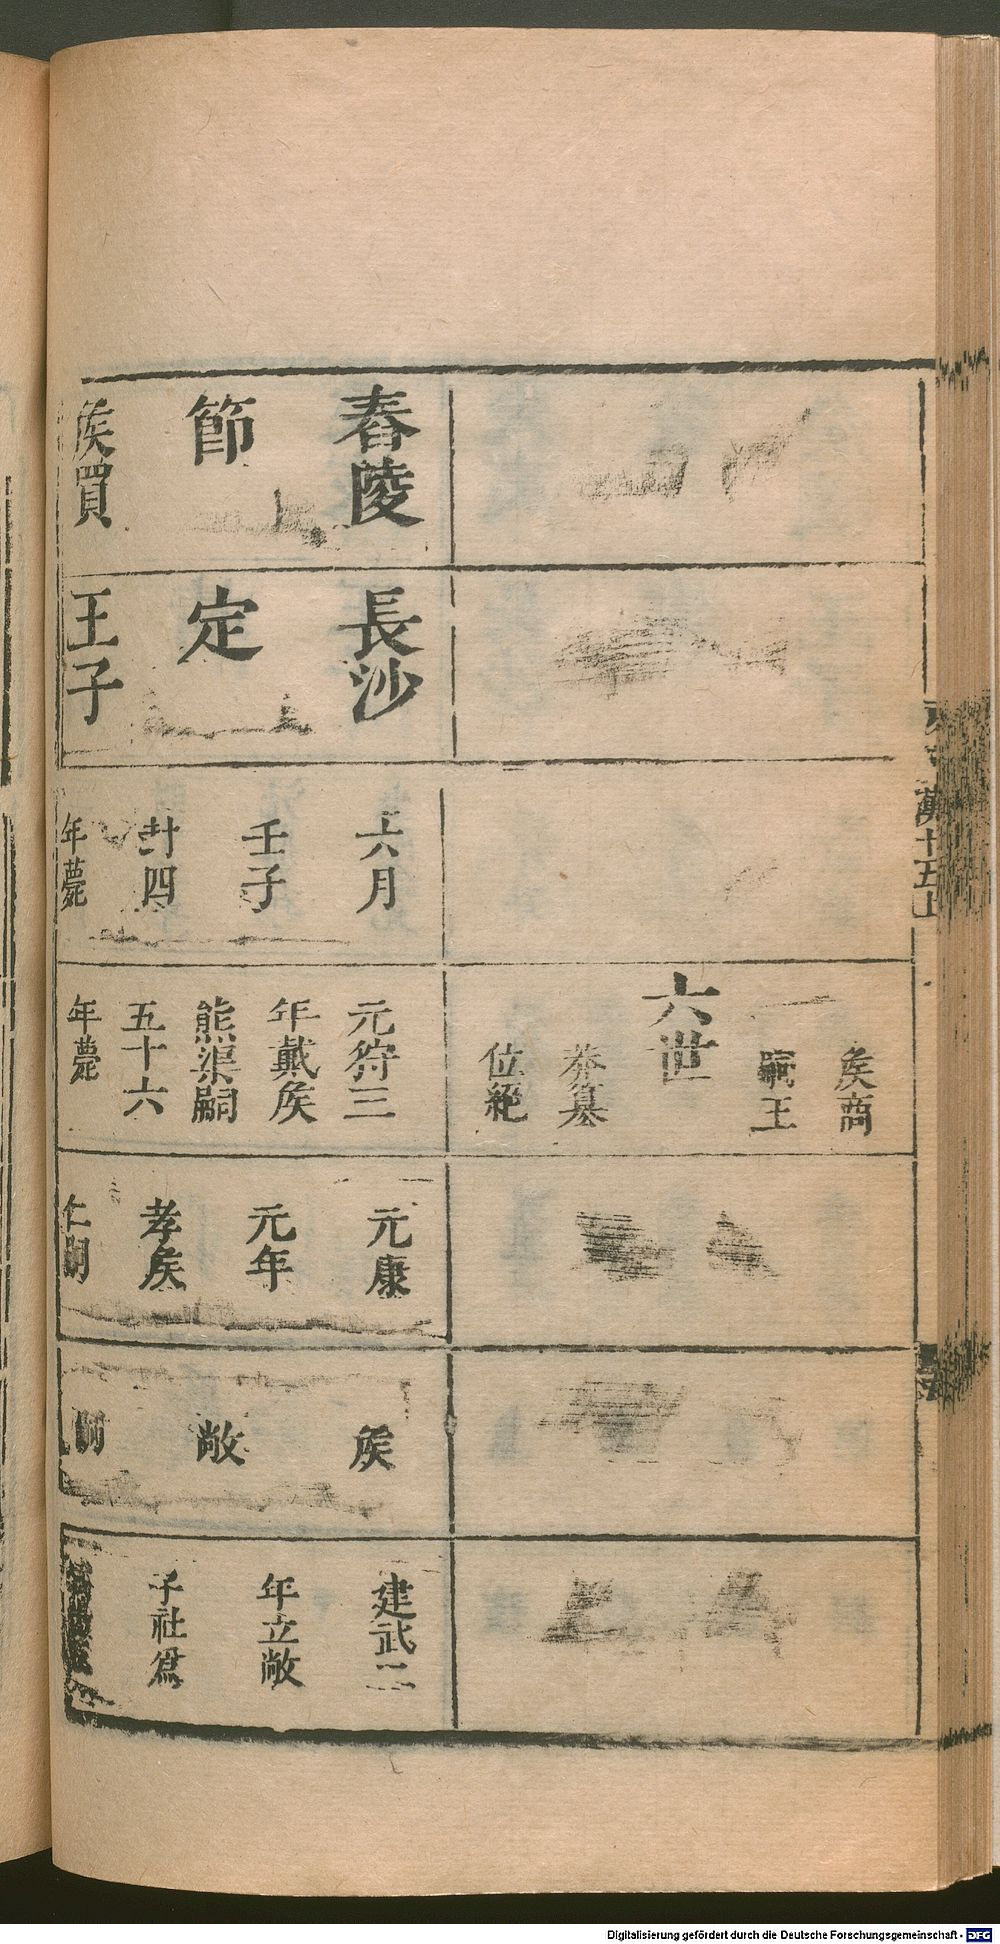 矦商
嗣王
六世
莽篡
位絶
舂陵
節
矦買
長沙
定
王子
六月
壬子
封四
年薨
元狩三
年戴矦
熊渠嗣
五十六
年薨
元康
元年
孝矦
仁嗣
矦
敞
嗣
建武二
年立敞
子社爲
十五上
Digitalisierung gefördert durch die Deutsche Forschungsgemeinschaft - DFG